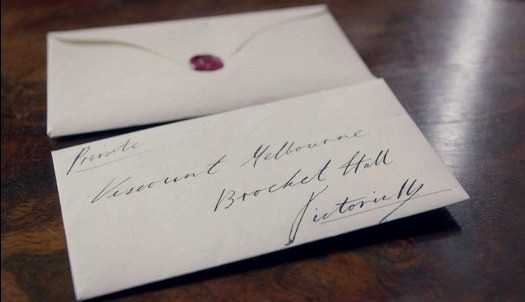 Private
Viscount Melbourne
Brocket Hall
Victoria